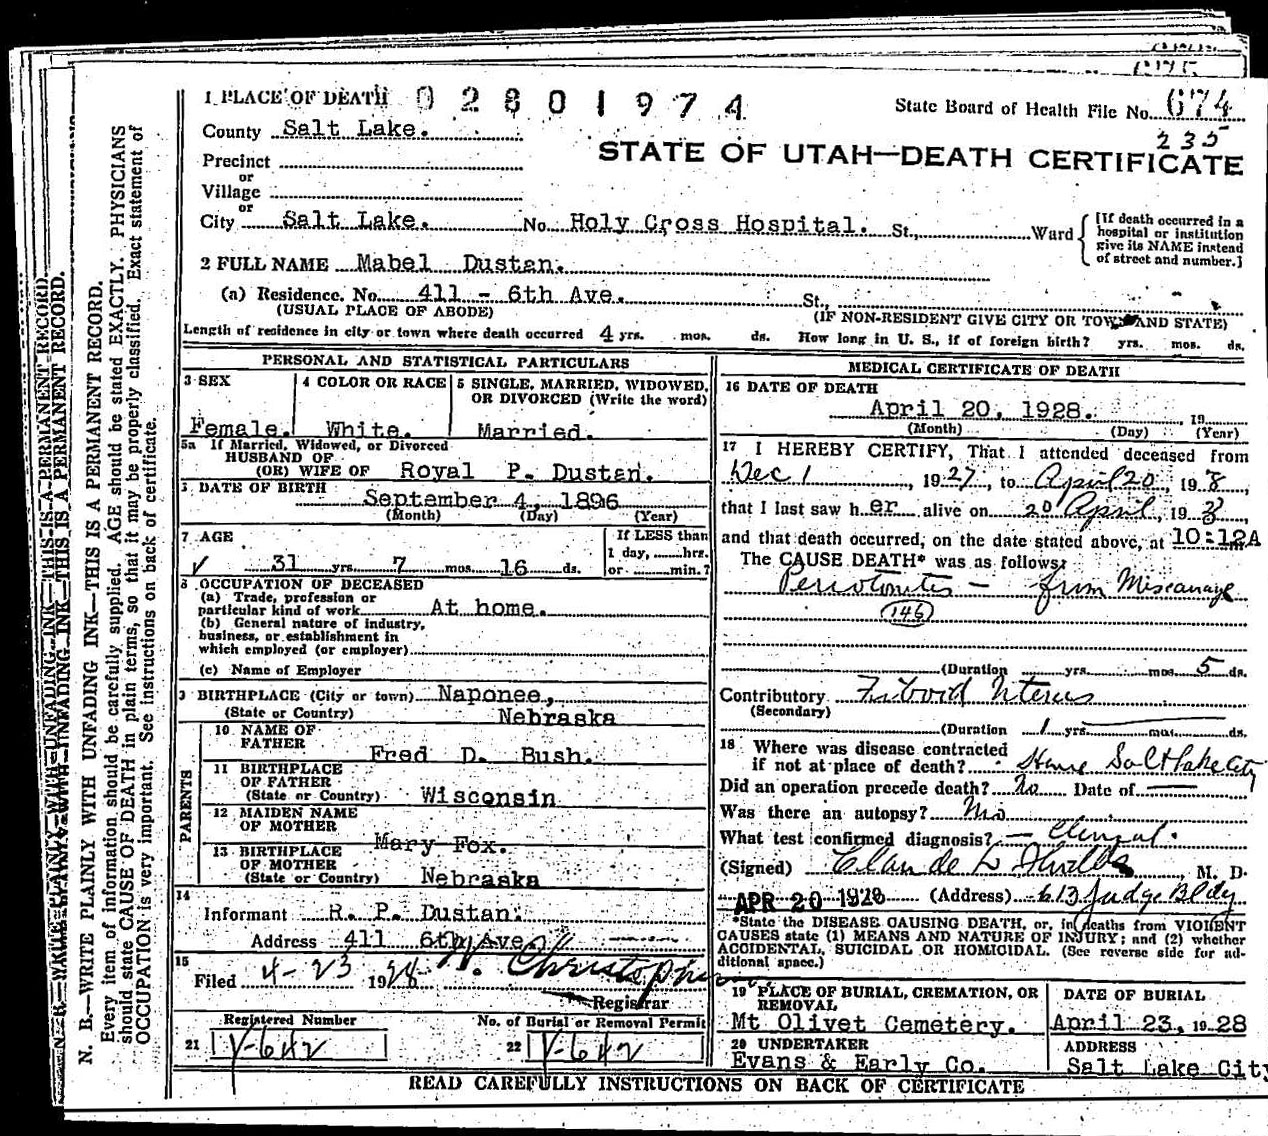 1 PLACE OF DEATH 0 2 8 0 1 9 7 4 State Board of Health File No. 674
235
County Salt Lake.
STATE OF UTAH—DEATH CERTIFICATE
Precinct
or
Village
or
City Salt Lake. No. Holy Cross Hospital. St., Ward
[If death occurred in a hospital or institution give its NAME instead of street and number.]
2 FULL NAME Mabel Dustan.
(a) Residence. No. 411 - 6th Ave. St.,
(USUAL PLACE OF ABODE) (IF NON-RESIDENT GIVE CITY OR TOWN AND STATE)
Length of residence in city or town where death occurred 4 yrs. mos. ds. How long in U. S., if of foreign birth? yrs. mos. ds.
PERSONAL AND STATISTICAL PARTICULARS
3 SEX 4 COLOR OR RACE 5 SINGLE, MARRIED, WIDOWED,
OR DIVORCED (Write the word)
Female. White. Married.
5a If Married, Widowed, or Divorced
HUSBAND OF
(OR) WIFE OF Royal P. Dustan.
DATE OF BIRTH
September 4, 1896
(Month) (Day) (Year)
7 AGE If LESS than
1 day, hrs.
31 yrs. 7 mos. 16 ds. or min.?
8 OCCUPATION OF DECEASED
(a) Trade, profession or
particular kind of work At home.
(b) General nature of industry,
business, or establishment in
which employed (or employer)
(c) Name of Employer
9 BIRTHPLACE (City or town) Naponee,
(State or Country) Nebraska
PARENTS
10 NAME OF
FATHER Fred D. Bush.
11 BIRTHPLACE
OF FATHER
(State or Country) Wisconsin
12 MAIDEN NAME
OF MOTHER
Mary Fox.
13 BIRTHPLACE
OF MOTHER
(State or Country) Nebraska
14
Informant R. P. Dustan.
Address 411 6th Ave
15
Filed 4-23 1928
Registrar
Registered Number No. of Burial or Removal Permit
21 Y-642 22 Y-642
MEDICAL CERTIFICATE OF DEATH
16 DATE OF DEATH
April 20, 1928. 19
(Month) (Day) (Year)
17 I HEREBY CERTIFY, That I attended deceased from
Dec 1, 1927, to April 20, 198,
that I last saw her alive on 20 April, 198,
and that death occurred, on the date stated above, at 10:12A
The CAUSE DEATH* was as follows:
Peritonitis — from Miscarriage
(146)
(Duration yrs. mos. 5 ds.
Contributory Fibroid Uterus
(Secondary)
(Duration 1 yrs. mos. ds.
18 Where was disease contracted
if not at place of death? Home Salt Lake City
Did an operation precede death? No Date of
Was there an autopsy? No
What test confirmed diagnosis? — Clinical.
(Signed) M. D.
APR 20 1928 (Address) 613 Judge Bldg
*State the DISEASE CAUSING DEATH, or, in deaths from VIOLENT
CAUSES state (1) MEANS AND NATURE OF INJURY; and (2) whether
ACCIDENTAL, SUICIDAL OR HOMICIDAL. (See reverse side for ad-
ditional space.)
19 PLACE OF BURIAL, CREMATION, OR
REMOVAL DATE OF BURIAL
Mt Olivet Cemetery. April 23, 1928
20 UNDERTAKER ADDRESS
Evans & Early Co. Salt Lake City
READ CAREFULLY INSTRUCTIONS ON BACK OF CERTIFICATE
N. B.—WRITE PLAINLY WITH UNFADING INK—THIS IS A PERMANENT RECORD.
Every item of information should be carefully supplied. AGE should be stated EXACTLY. PHYSICIANS
should state CAUSE OF DEATH in plain terms, so that it may be properly classified. Exact statement of
OCCUPATION is very important. See instructions on back of certificate.